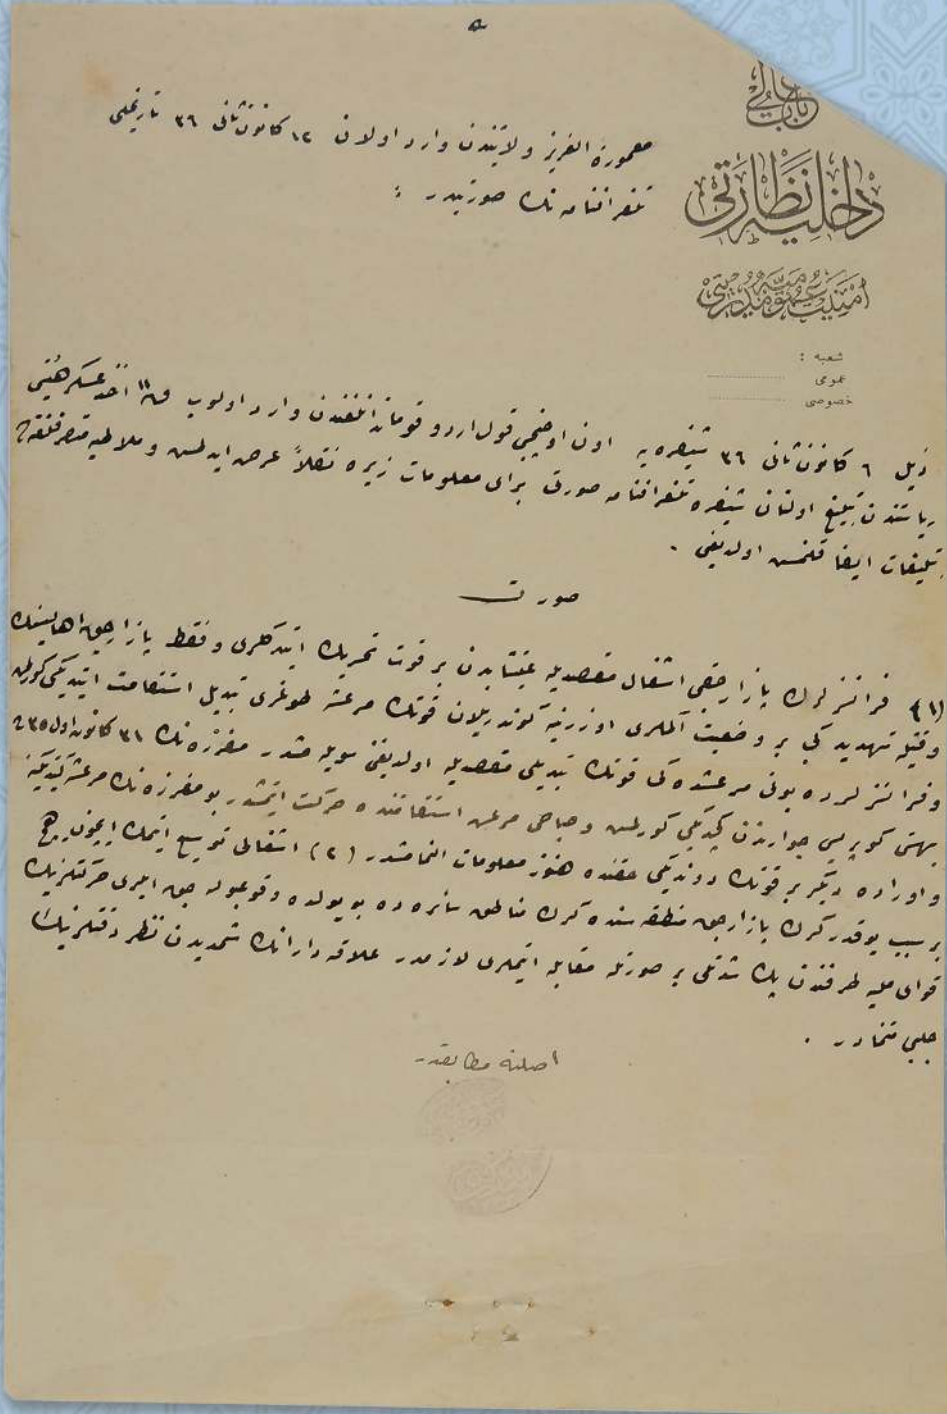 ۵
باب عالی
داخلیه نظارتی
امنیت عمومیه مدیریتی
شعبه :
عمومی
خصوصی
معمورة العزیز ولایتندن وارد اولان ١٢ کانون ثانی ٣٦ تاریخلی
تلغرافنامه نك صورتیدر :
ذیل ٦ کانون ثانی ٣٦ شیفره یه اون اوچنجی قول اردو قوماندانلغندن وارد اولوب ١١ اخذ عسکر هیئتی
ریاستندن تبلیغ اولنان شیفره تلغرافنامه صورتی برای معلومات زیره نقلاً عرض ایدلمش و ملاطیه متصرفلغنه
تبلیغات ایفا قلنمش اولدیغی .
صورت
(١) فرانسزلرك بازارجغی اشغال مقصدیله عینتابدن بر قوت تحریك ایتدکلری و فقط بازارجق اهالیسنك
وقتیله تهدید کبی بر وضعیت آلملری اوزرینه کوندریلان قوتك مرعشه طوغری تبدیل استقامت ایتدیکی کورلمش
و فرانسزلرده بونی مرعشده کی قوتك تبدیلی مقصدیله اولدیغنی سویلمشدر مفرزه نك ٣١ کانون اول ٣٥ ده
کوپریسی جوارندن کچدیکی کورلمش و صباحی مرعش استقامتنده حرکت ایتمشدر بو مفرزه نك مرعشه کیتدیکنه
و اوراده دیکر بر قوتك دوندیکی حقنده هنوز معلومات النمامشدر (٢) اشغالی توسیع ایتمك ایچون هیچ
بر سبب یوقدر کرك بازارجق منطقه سنده کرك مناطق سائره ده بو یولده وقوعبوله جق ایلری حرکتلرینك
قوای ملیه طرفندن پك شدتلی بر صورتله مقابله ایتملری لازمدر علاقه دارانك شمدیدن نظر دقتلرینك
جلبی متمنادر .
اصلنه مطابقدر